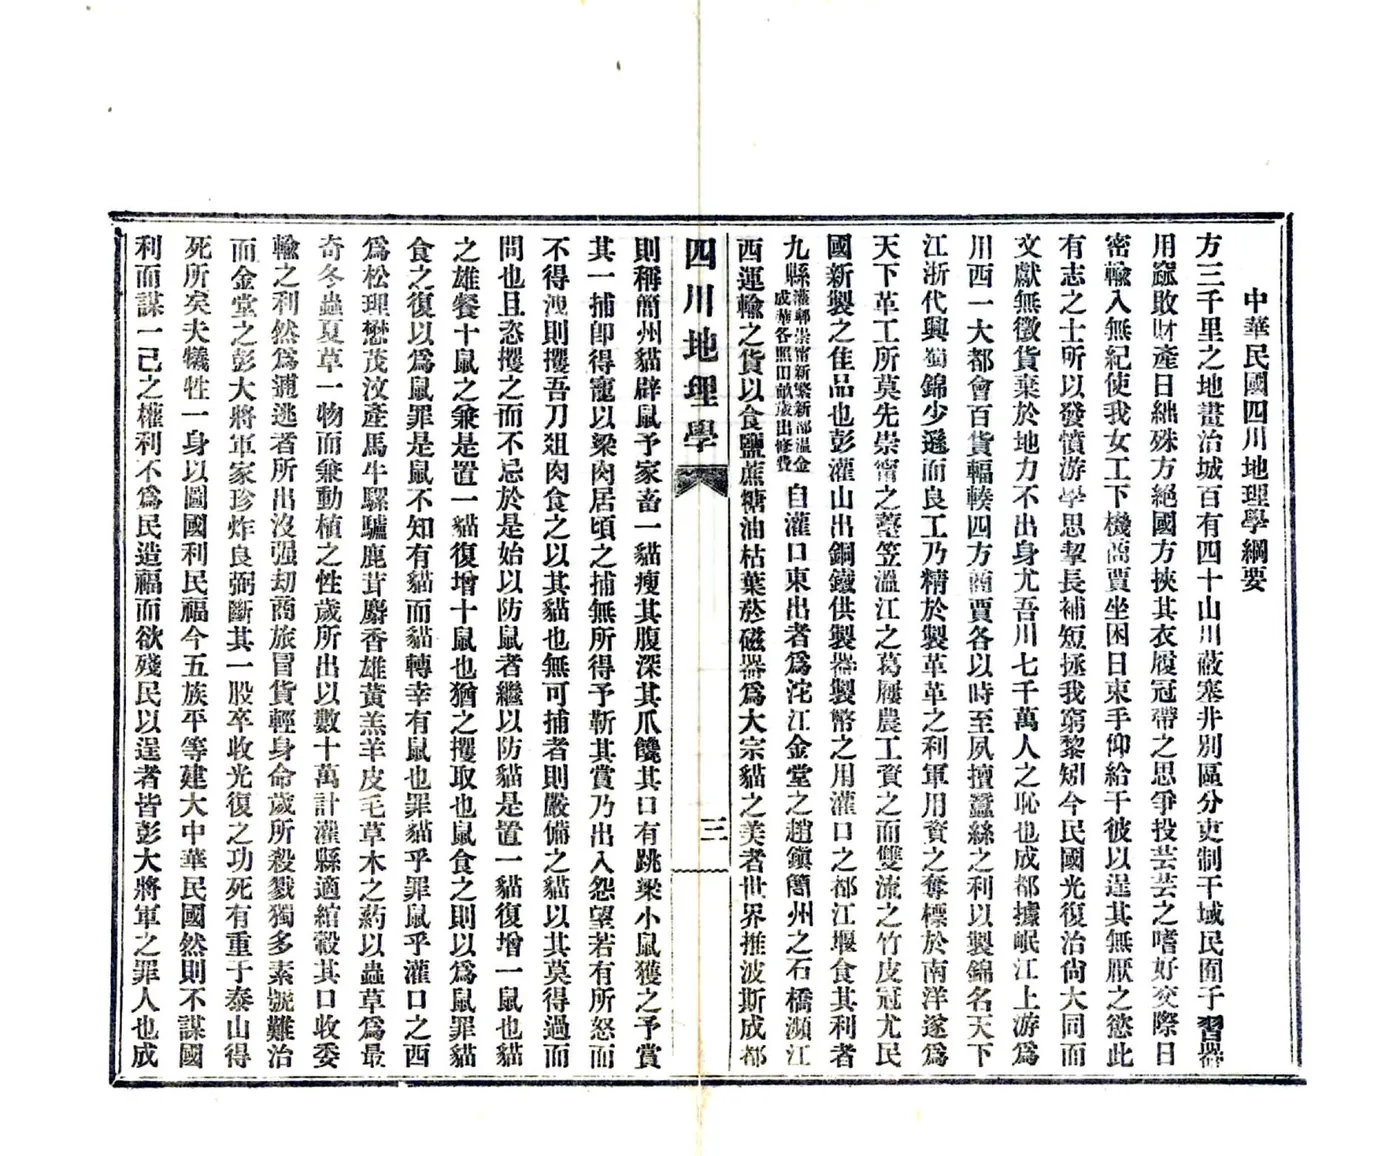 中華民國四川地理學綱要
方三千里之地畫治城百有四十山川蔽塞井別區分吏制干域民囿于習器
用窳敗財產日絀殊方絕國方挾其衣履冠帶之思爭投芸芸之嗜好交際日
密輸入無紀使我女工下機商賈坐困日束手仰給于彼以逞其無厭之慾此
有志之士所以發憤游學思挈長補短拯我窮黎矧今民國光復治尙大同而
文獻無徵貨棄於地力不出身尤吾川七千萬人之恥也成都據岷江上游爲
川西一大都會百貨輻輳四方商賈各以時至夙擅蠶絲之利以製錦名天下
江浙代興蜀錦少遜而良工乃精於製革革之利軍用資之奪標於南洋遂爲
天下革工所莫先崇甯之薹笠溫江之葛屨農工資之而雙流之竹皮冠尤民
國新製之佳品也彭灌山出銅鐵供製器製幣之用灌口之都江堰食其利者
九縣灌郫崇甯新繁新都溫金成華各照田畝歲出修費自灌口東出者爲沱江金堂之趙鎭簡州之石橋瀕江
西運輸之貨以食鹽蔗糖油枯葉菸磁器爲大宗貓之美者世界推波斯成都
四川地理學
三
則稱簡州貓辟鼠予家畜一貓瘦其腹深其爪饞其口有跳梁小鼠獲之予賞
其一捕卽得寵以梁肉居頃之捕無所得予靳其賞乃出入怨望若有所怒而
不得洩則攫吾刀俎肉食之以其貓也無可捕者則嚴備之貓以其莫得過而
問也且恣攫之而不忌於是始以防鼠者繼以防貓是置一貓復增一鼠也貓
之雄餐十鼠之兼是置一貓復增十鼠也猶之攫取也鼠食之則以爲鼠罪貓
食之復以爲鼠罪是鼠不知有貓而貓轉幸有鼠也罪貓乎罪鼠乎灌口之西
爲松理懋茂汶產馬牛騾驢鹿茸麝香雄黃羔羊皮毛草木之葯以蟲草爲最
奇冬蟲夏草一物而兼動植之性歲所出以數十萬計灌縣適綰轂其口收委
輸之利然爲逋逃者所出沒强劫商旅冒貨輕身命歲所殺戮獨多素號難治
而金堂之彭大將軍家珍炸良弼斷其一股卒收光復之功死有重于泰山得
死所矣夫犧牲一身以圖國利民福今五族平等建大中華民國然則不謀國
利而謀一己之權利不爲民造福而欲殘民以逞者皆彭大將軍之罪人也成